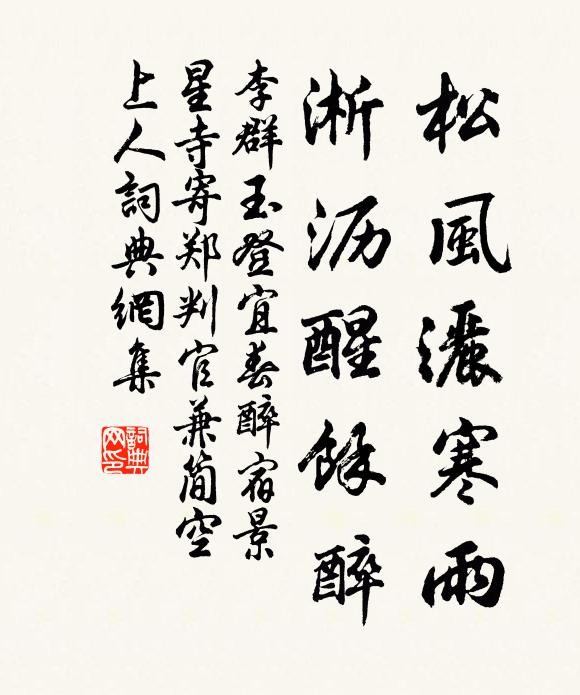 松風灑寒雨
淅沥醒餘醉
李群玉登宜春醉宿景
星寺寄郑判官兼简空
上人詞典網集
詞典网印